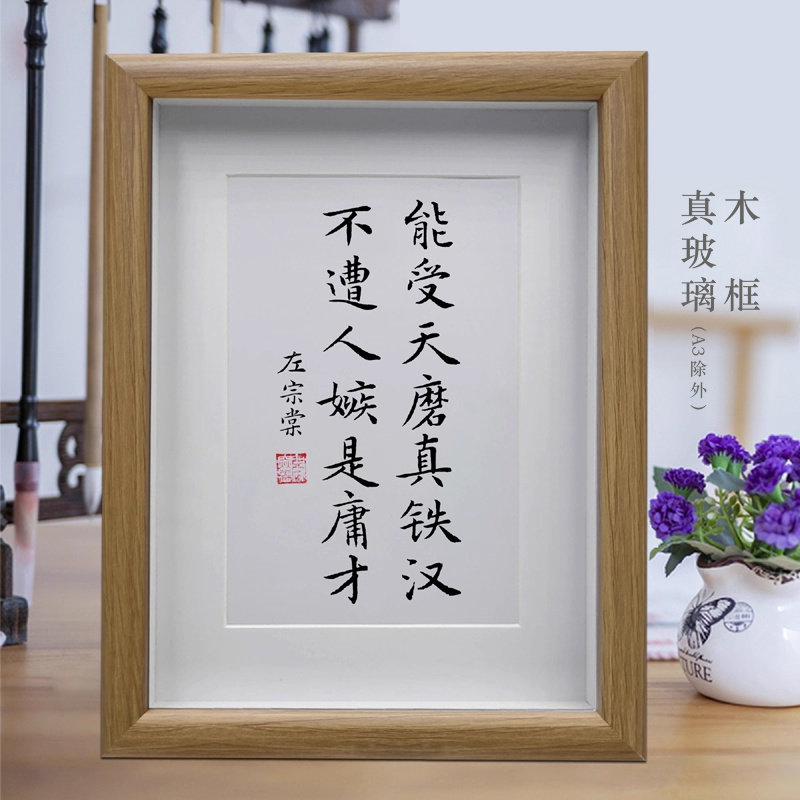 能受天磨真铁汉
不遭人嫉是庸才
左宗棠
木框
真玻璃(A3除外)
TURE